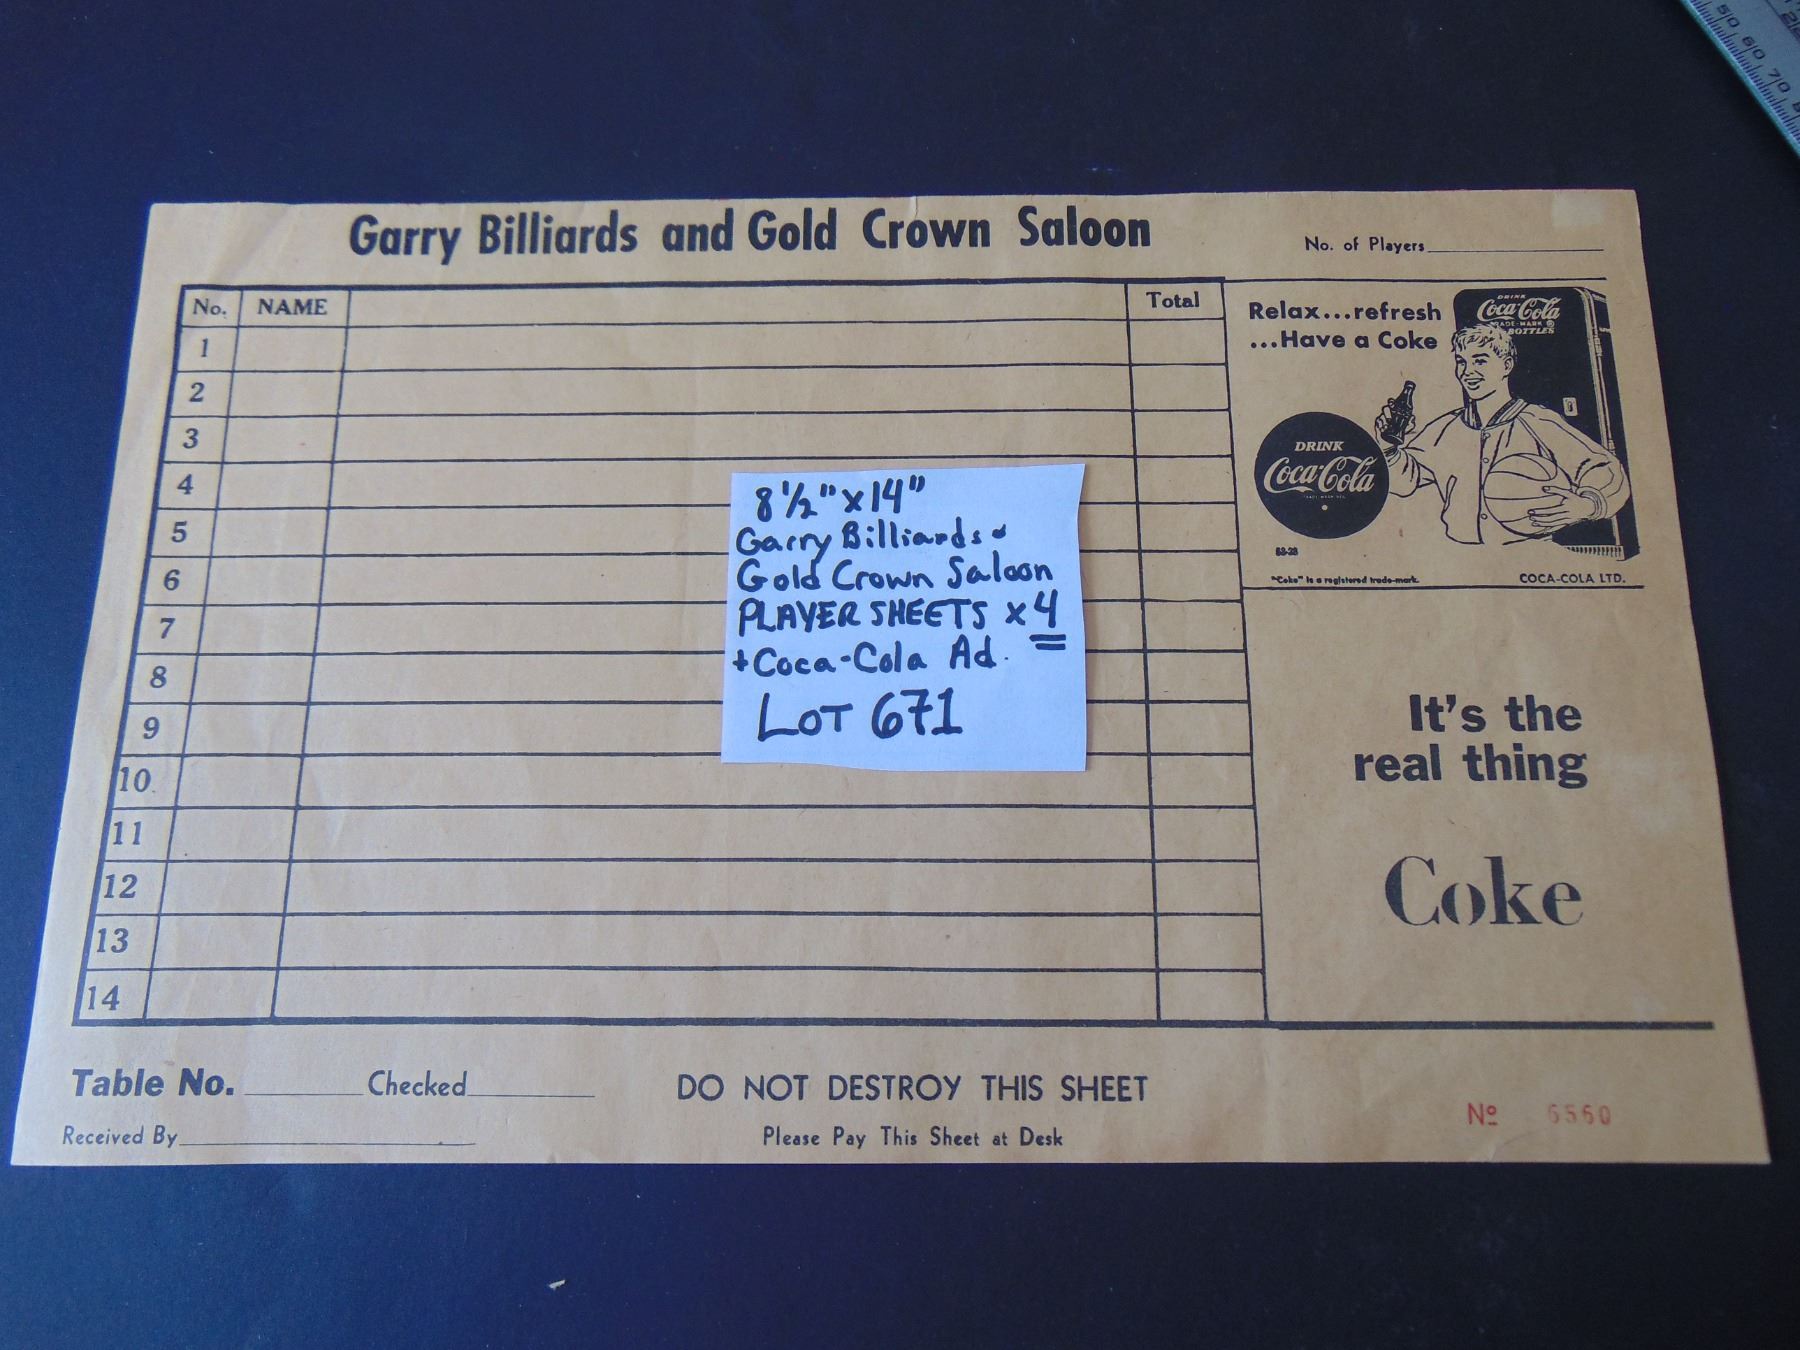 Garry Billiards and Gold Crown Saloon
No. of Players
No. NAME Total
1
2
3
4
5
6
7
8
9
10
11
12
13
14
8 1/2" x 14"
Garry Billiards &
Gold Crown Saloon
PLAYER SHEETS x 4
+ Coca-Cola Ad.
LOT 671
Relax...refresh
...Have a Coke
DRINK
Coca-Cola
TRADE-MARK ®
BOTTLES
DRINK
Coca-Cola
"Coke" is a registered trade-mark.
COCA-COLA LTD.
It's the
real thing
Coke
Table No. Checked
Received By
DO NOT DESTROY THIS SHEET
Please Pay This Sheet at Desk
Nº 6560
50 60 70